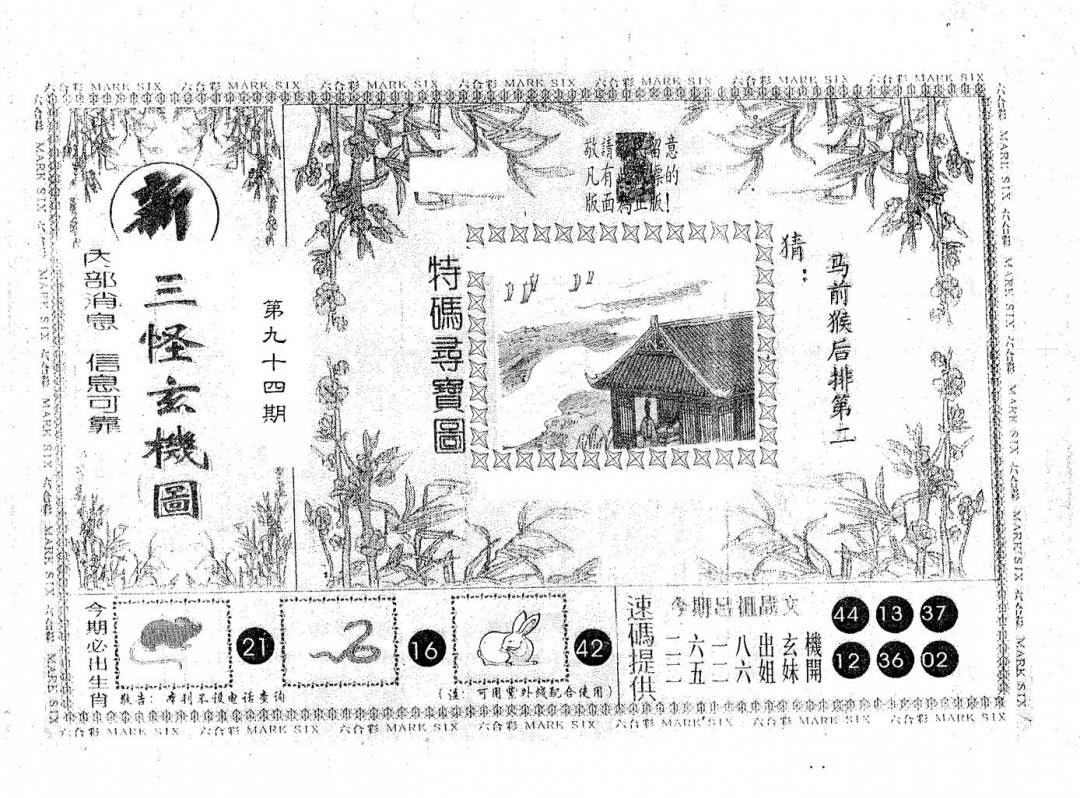 六合彩 MARK SIX 六合彩 MARK SIX 六合彩 MARK SIX 六合彩 MARK SIX 六合彩 MARK SIX 六合彩 MARK SIX 六合彩 MARK SIX
新
三怪玄機圖
内部消息 信息可靠
第九十四期
敬請
意
凡有
的
版面為正版!
特碼尋寶圖
猜:
马前猴后排第二
今期必出生肖
21
16
42
敬告: 本刊不设电话查询
(注: 可用紫外线配合使用)
速碼提供
今期
文
二六一八出玄機
二五二六姐妹開
44 13 37
12 36 02
六合彩 MARK SIX 六合彩 MARK SIX 六合彩 MARK SIX 六合彩 MARK SIX 六合彩 MARK SIX 六合彩 MARK SIX 六合彩 MARK SIX